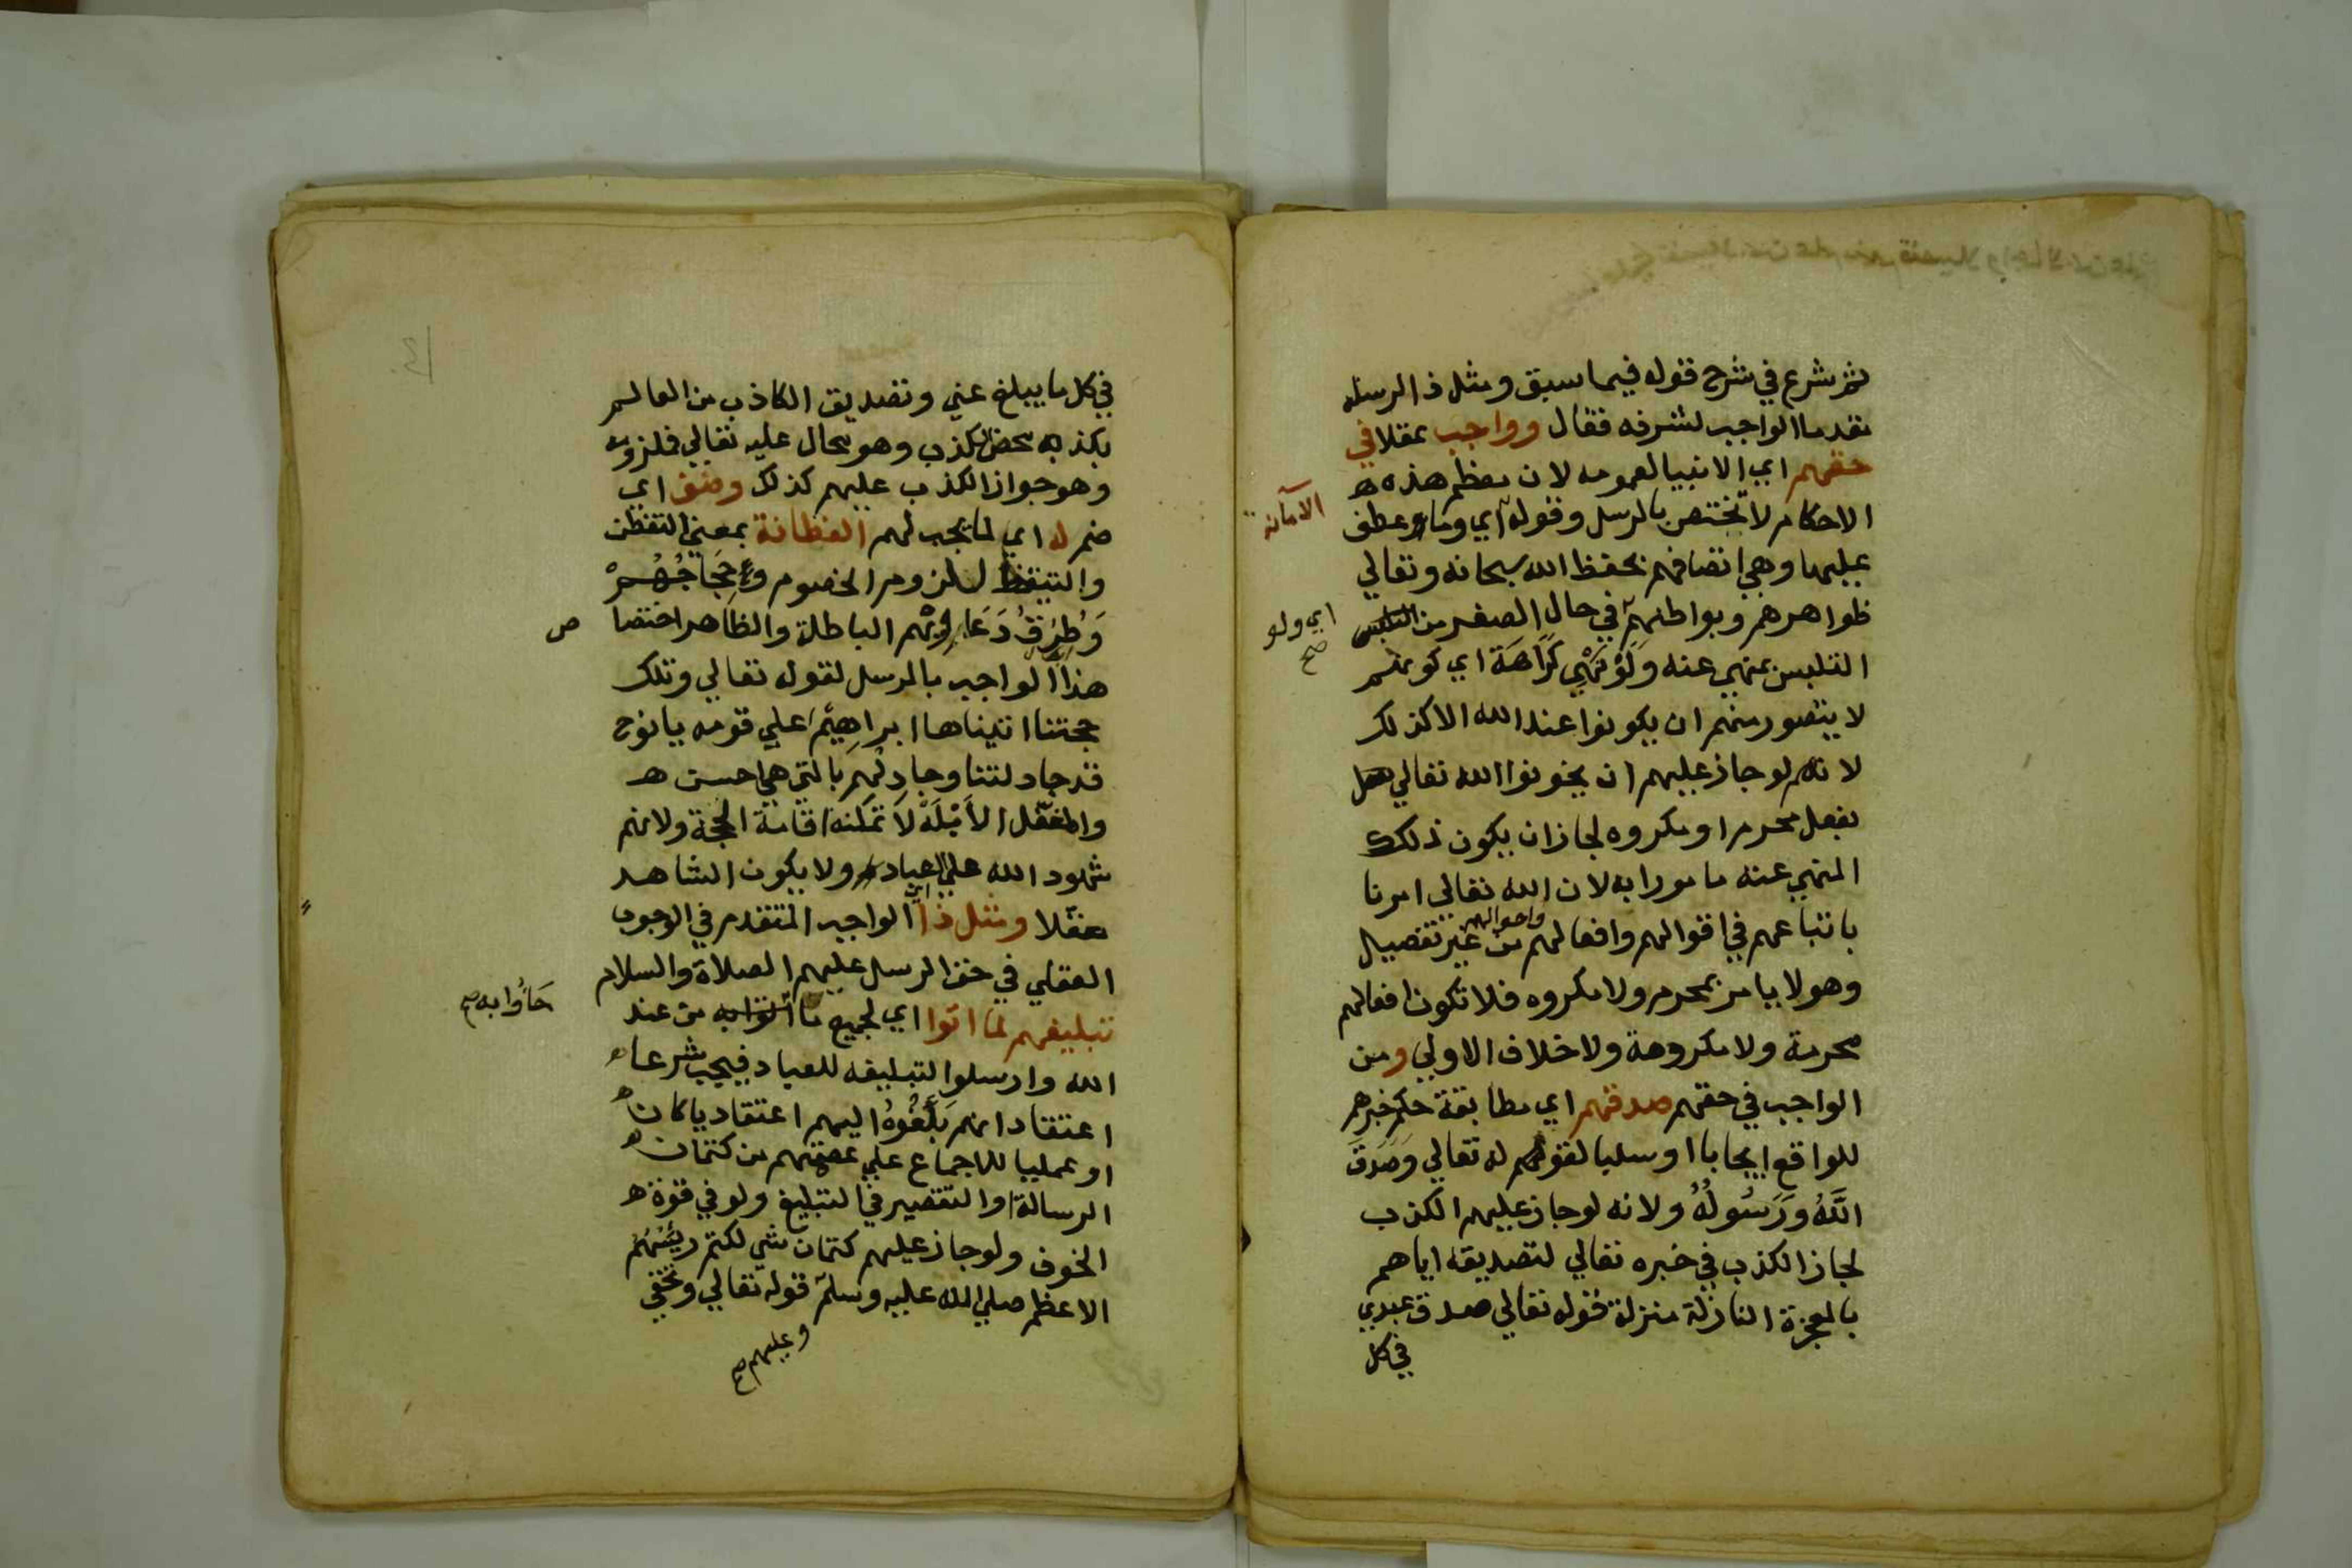 ثم شرع في شرح قوله فيما سبق ومثل ذا لرسله
مقدما الواجب لشرفه فقال وواجب عقلا في
حقهم اي الانبيا لعمومه لان معظم هذه ه
الاحكام لا تختص بالرسل وقوله اي وما عطف
الامانة
عليها وهي اتصافهم بحفظ الله سبحانه وتعالي
ظواهرهم وبواطنهم في حال الصغر من التلبس
اي ولو
صح
التلبس بمنهي عنه ولو نهي كراهة اي كونهم
لا يتصور منهم ان يكونوا عند الله الا كذلك
لانهم لو جاز عليهم ان يخونوا الله تعالي
بفعل محرم او مكروه لجاز ان يكون ذلك
المنهي عنه مامورا به لان الله تعالي امرنا
باتباعهم في اقوالهم وافعالهم واحوالهم من غير تفصيل
وهو لا يامر بمحرم ولا مكروه فلا تكون افعالهم
محرمة ولا مكروهة ولا خلاف الاولي ومن
الواجب في حقهم صدقهم اي مطابقة حكم خبرهم
للواقع ايجابا او سلبا لقوله تعالي وَصَدَقَ
اللَّهُ وَرَسُولُهُ ولانه لو جاز عليهم الكذب
لجاز الكذب في خبره تعالي لتصديقه اياهم
بالمعجزة النازلة منزلة قوله تعالي صدق عبدي
في كل
في كل ما يبلغ عني وتصديق الكاذب من العالم
بكذبه محض الكذب وهو محال عليه تعالي فملزومه
وهو جواز الكذب عليهم كذلك وضف اي
ضم له اي لما يجب لهم الفطانة بمعني التفطن
والتيقظ لالزام الخصوم وحجاجهم
وَطُرُقِ دَعَاوِيْهم الباطلة والظاهر اختصا
ص
هذا الواجب بالرسل لقوله تعالي وتلك
حجتنا اتيناها ابراهيم علي قومه يا نوح
قد جادلتنا وجادلهم بالتي هي احسن ه
والمغفّل الأَبْلَهْ لاَ تمكنه اقامة الحجة ولانهم
شهود الله علي العباد ولا يكون الشاهد
مغفلا ومثل ذا اي الواجب المتقدم في الوجوب
العقلي في حق الرسل عليهم الصلاة والسلام
تبليغهم لما اتوا اي لجميع ما اتوا به من عند
جَاؤُا به صح
الله وارسلوا لتبليغه للعباد فيجب شرعا
اعتقاد انهم بَلَّغُوْهُ اليهم اعتقاديا كان
او عمليا للاجماع علي عصمتهم من كتمان
الرسالة او التقصير في التبليغ ولو في قوة ه
الخوف ولو جاز عليهم كتمان شي لكتم رئيسُهُم
الاعظم صلي الله عليه وسلم قوله تعالي وتخفي
وعليهم صح